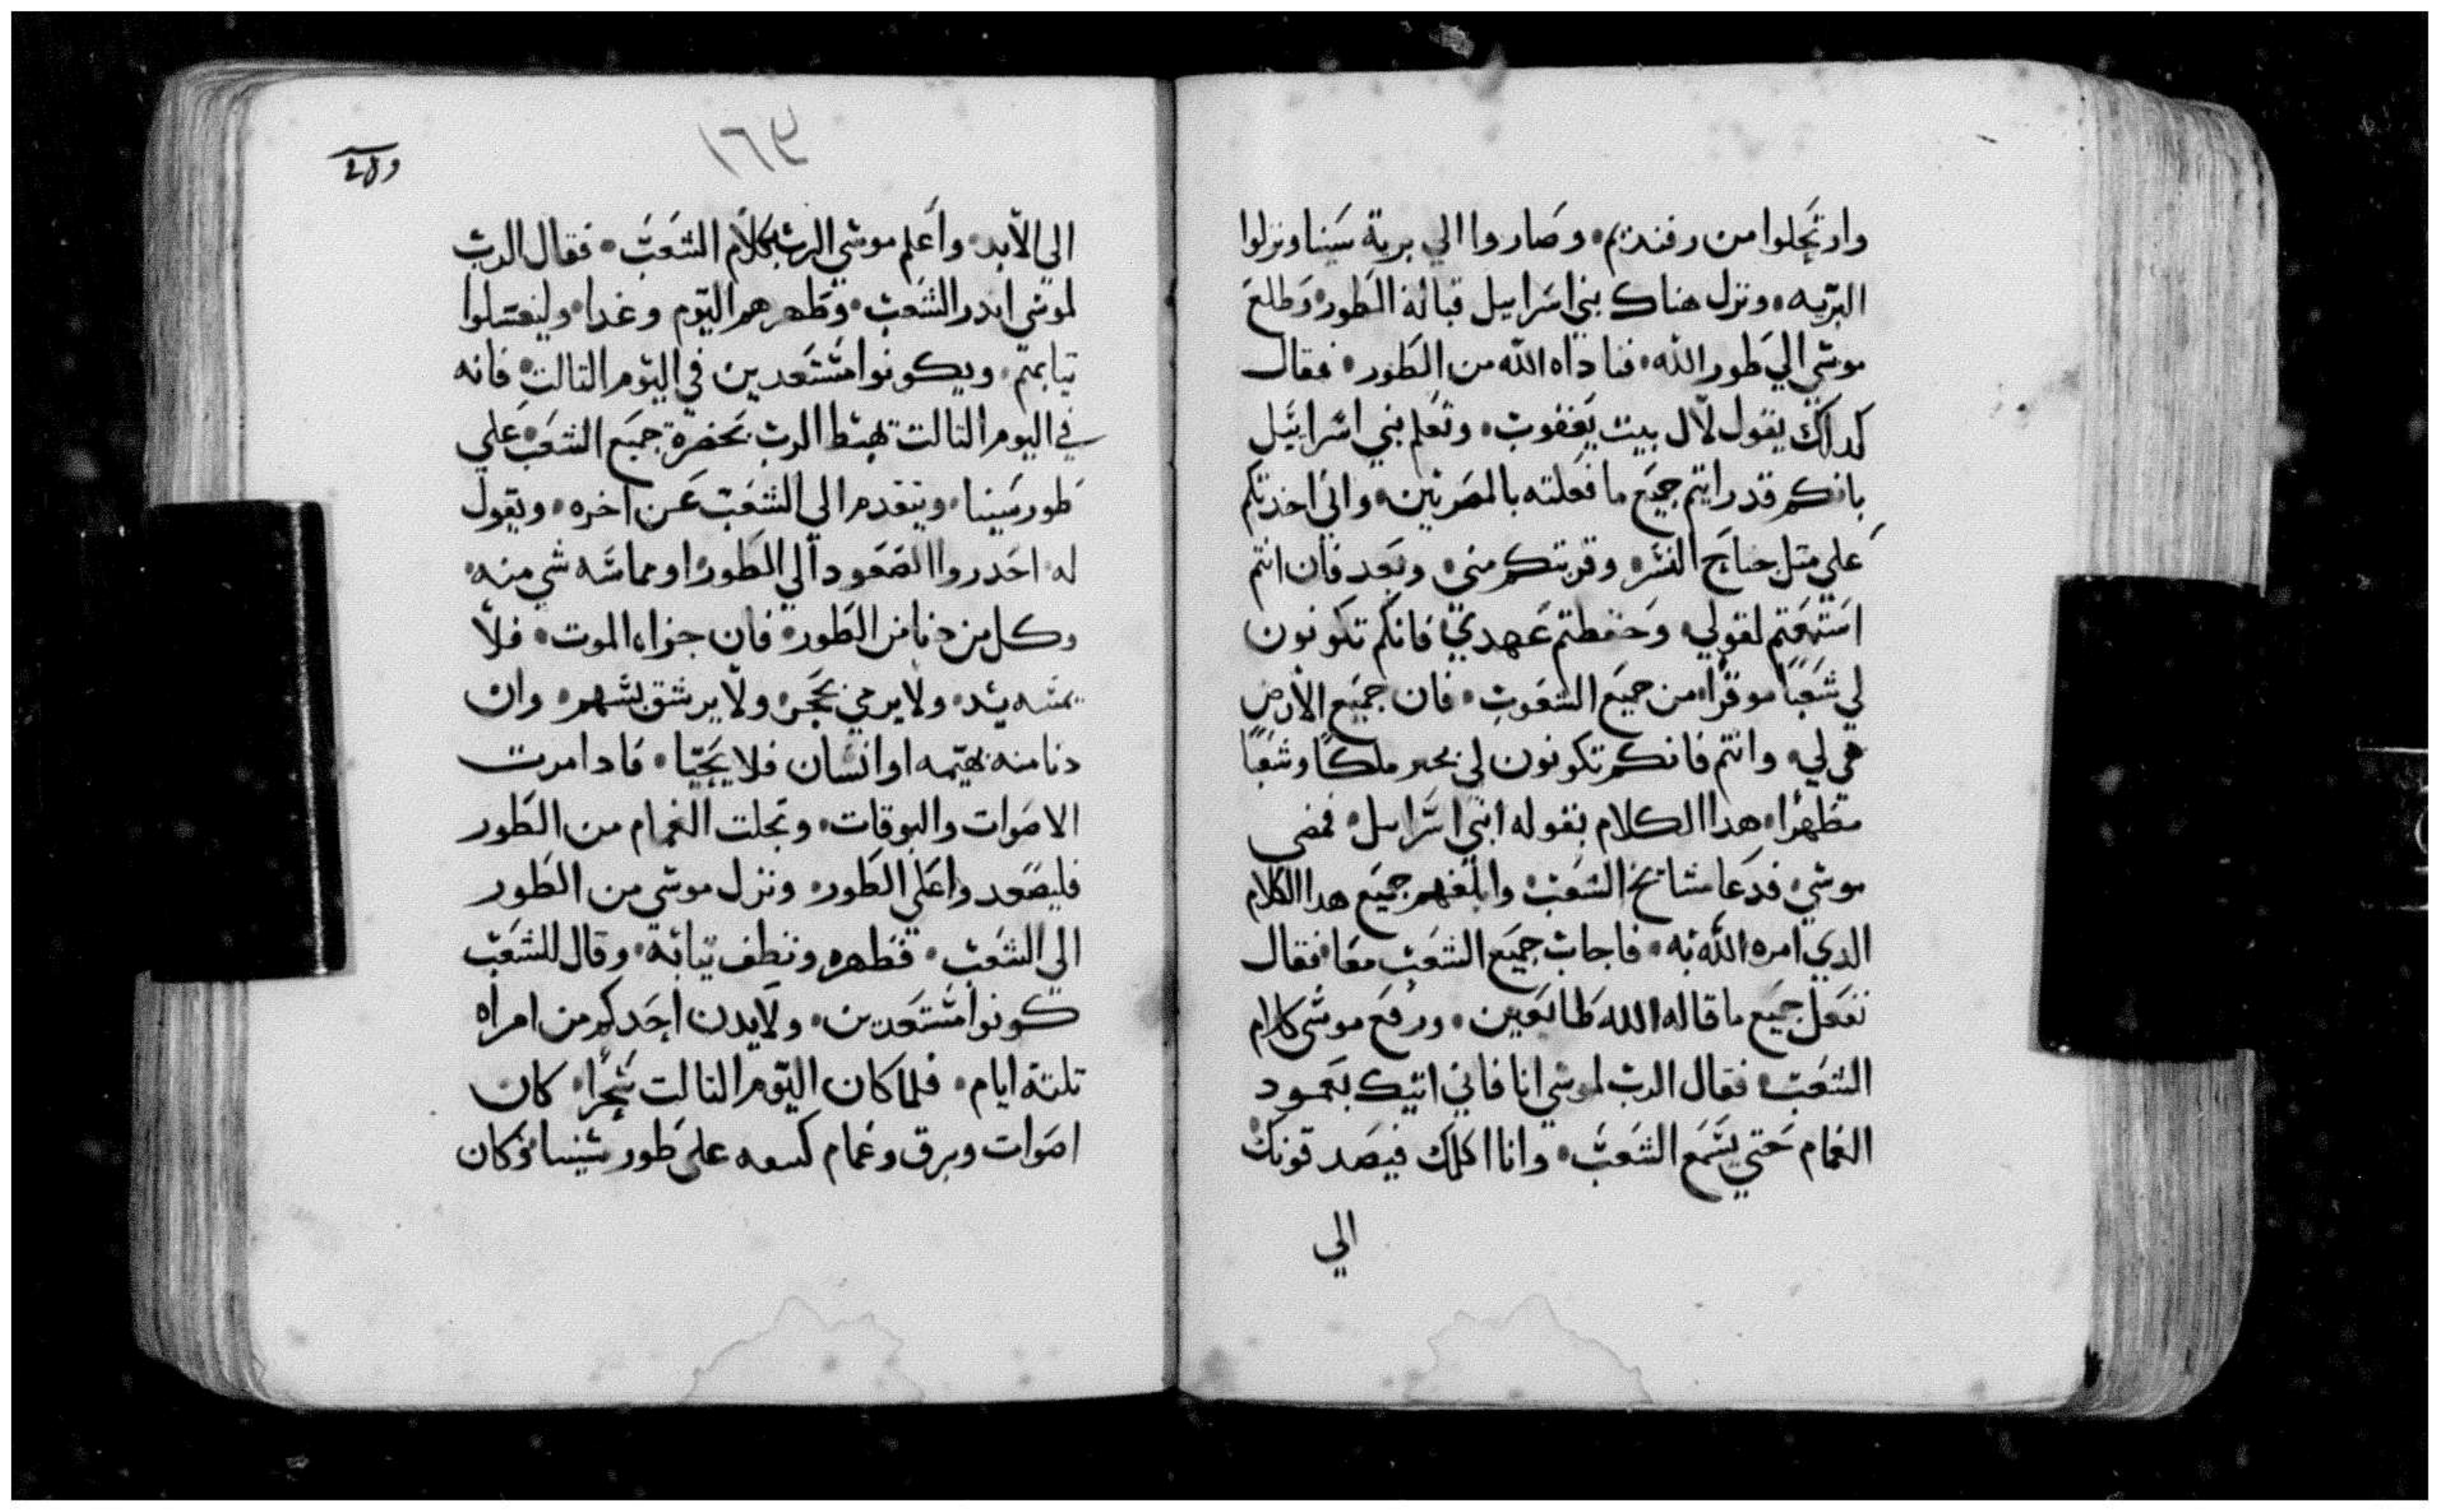 وارتحلوا من رفنديم وصاروا الي برية سينا ونزلوا
البريه ونزل هناك بني اسراييل قبالة الطور وطلع
موسي الي طور الله فناداه الله من الطور فقال
كدلك يقول لال بيت يعقوب وتعلم بني اسراييل
بانكم قد رايتم جميع ما فعلته بالمصريين واني اخدتكم
علي متل جناح النسر وقربتكم مني وبعد فان انتم
استمعتم لقولي وحفظتم عهدي فانكم تكونون
لي شعبا موقرا من جميع الشعوب فان جميع الارض
هي لي وانتم فانكم تكونون لي ملكا وشعبا
مطهرا هدا الكلام بقوله ابني اسراييل فمضي
موسي فدعا مشايخ الشعب وابلغهم جميع هدا الكلام
الدي امره الله به فاجاب جميع الشعب معا فقال
نفعل جميع ما قاله الله طايعين ورفع موسي كلام
الشعب فقال الرب لموسي انا فاني اتيك بعمود
الغمام حتي يسمع الشعب وانا اكلمك فيصدقونك
الي
١٦٣
الي الابد واعلم موسي الرب بكلام الشعب فقال الرب
لموسي اندر الشعب وطهرهم اليوم وغدا وليغسلوا
تيابهم ويكونوا مستعدين في اليوم التالت فانه
في اليوم التالت يهبط الرب بحضرة جميع الشعب علي
طور سينا ويتقدم الي الشعب عن اخره ويقول
له احدروا الصعود الي الطور او مماسه شي منه
وكل من دنا من الطور فان جزاه الموت فلا
يمسه يد ولا يرمي بحجر ولا يرشق بسهم وان
دنا منه بهيمه او انسان فلا يحيا فادا مرت
الاصوات والبوقات وتجلت الغمام من الطور
فليصعدوا علي الطور ونزل موسي من الطور
الي الشعب فطهره ونظف تيابه وقال للشعب
كونوا مستعدين ولا يدن احدكم من امراه
تلتة ايام فلما كان اليوم التالت سحرا كان
اصوات وبرق وغمام علي طور سينا وكان